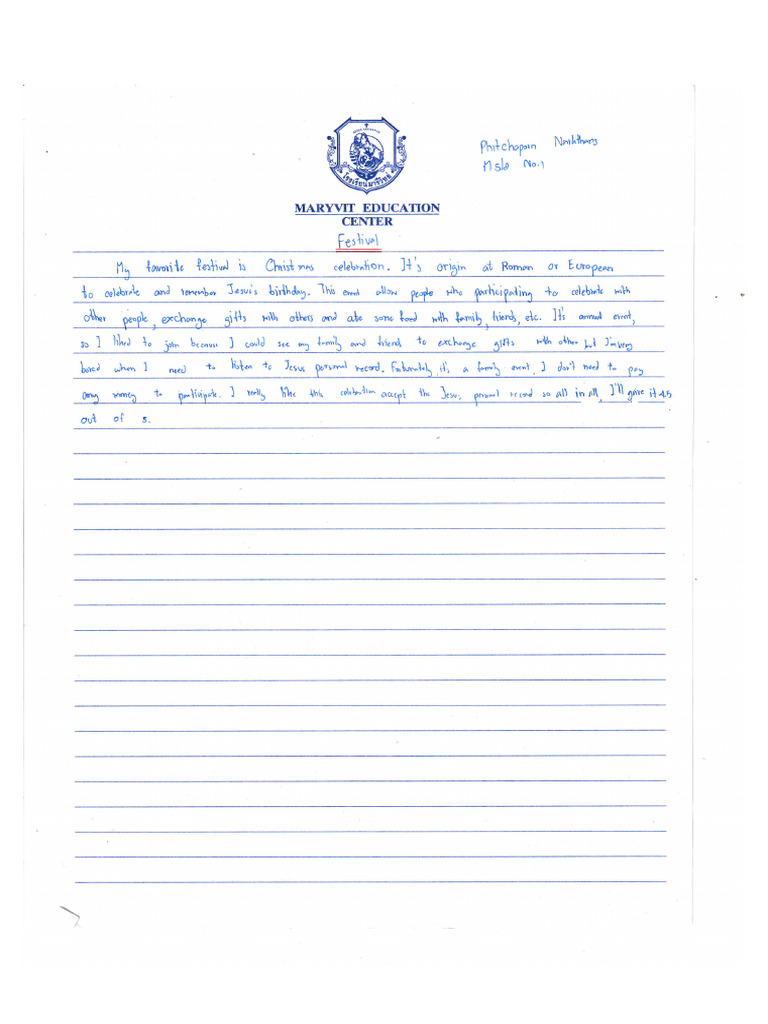 โรงเรียนมารีวิทย์
Phitchaporn
M5/2 No.1
MARYVIT EDUCATION
CENTER
Festival
My favorite festival is Christmas celebration. It's origin at Roman or European
to celebrate and remember Jesus's birthday. This event allow people who participating to celebrate with
other people, exchange gifts with others and ate some food with family, friends, etc. It's annual event,
so I liked to join because I could see my family and friends to exchange gifts with other but I'm very
bored when I need to listen to Jesus personal record. Fortunately, it's a family event, I don't need to pay
any money to participate. I really like this celebration accept the Jesus personal record so all in all, I'll gave it 4.5
out of 5.